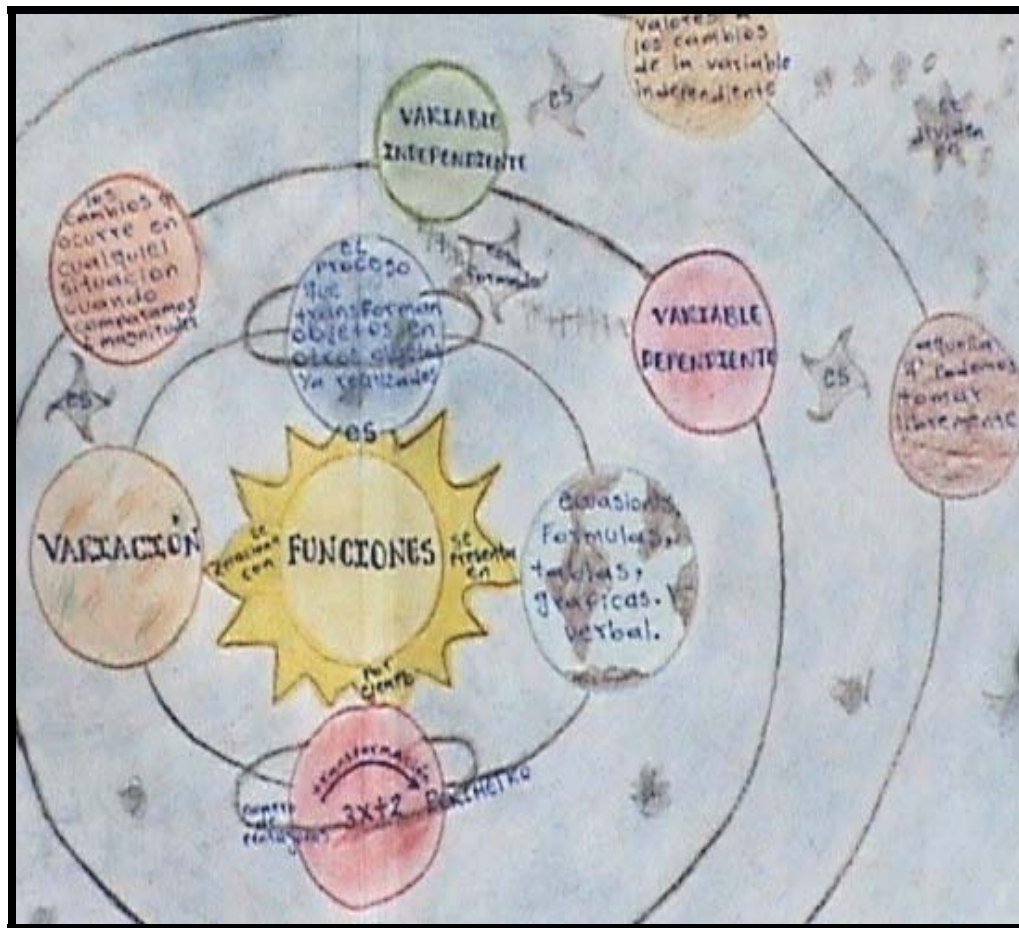 valores a
los cambios
de la variable
independiente
es
se
dividen
en
VARIABLE
INDEPENDIENTE
los
cambios q
ocurre en
cualquier
situación
cuando
comparamos
magnitudes
el
proceso
que
transforman
objetos en
otros objetos
ya realizados
esta
formada
VARIABLE
DEPENDIENTE
es
aquella
q podemos
tomar
libremente
es
es
VARIACIÓN
se
relaciona
con
FUNCIONES
se
presenta
en
Formulas,
tablas,
gráficas. y
verbal.
por
ejemplo
transformación
numero
de
3x+2
PERIMETRO